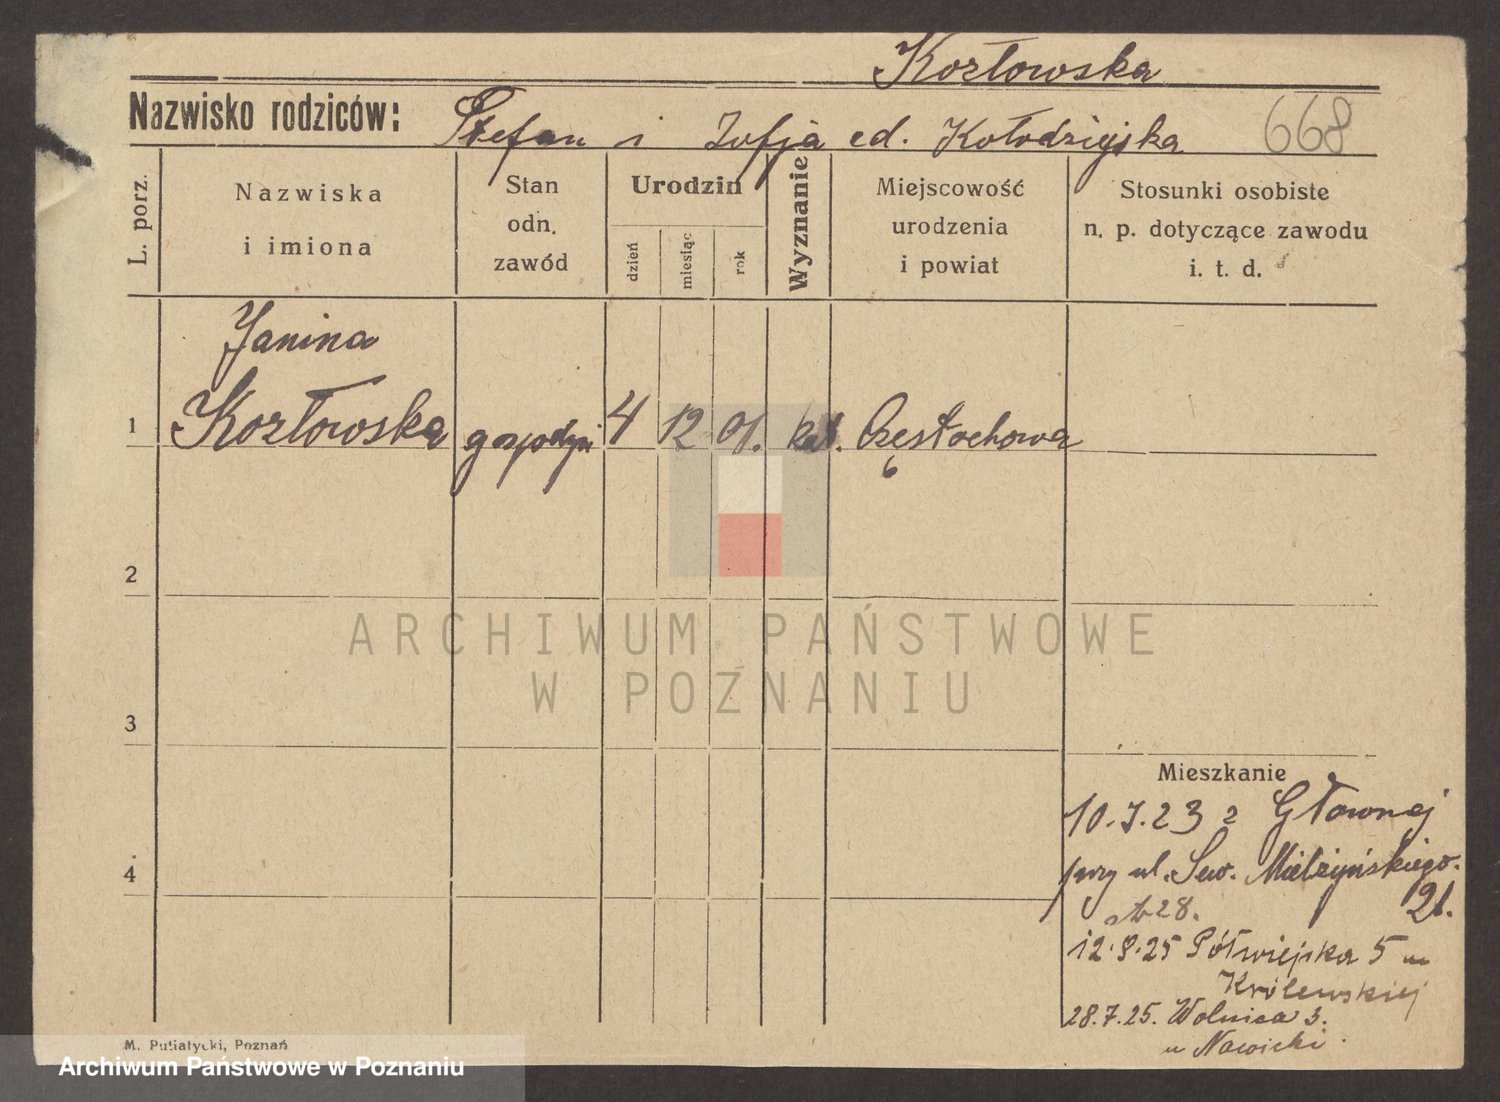 Kozłowska
Nazwisko rodziców: Stefan i Zofja cd. Kołodziejska 668
L. porz.
Nazwiska i imiona
Stan odn. zawód
Urodzin
dzień miesiąc rok
Wyznanie
Miejscowość urodzenia i powiat
Stosunki osobiste n. p. dotyczące zawodu i. t. d.
Janina
1 Kozłowska gospodyni 4 12 01. kat. Częstochowa
2
ARCHIWUM PAŃSTWOWE
W POZNANIU
3
Mieszkanie
10.7.23 z Głównej
4
przy ul. Sew. Mielżyńskiego.
21.
28.
12.8.25 Półwiejska 5 u
Królewskiej
28.7.25. Wolnica 3.
u Nawicki.
M. Putiatycki, Poznań
Archiwum Państwowe w Poznaniu